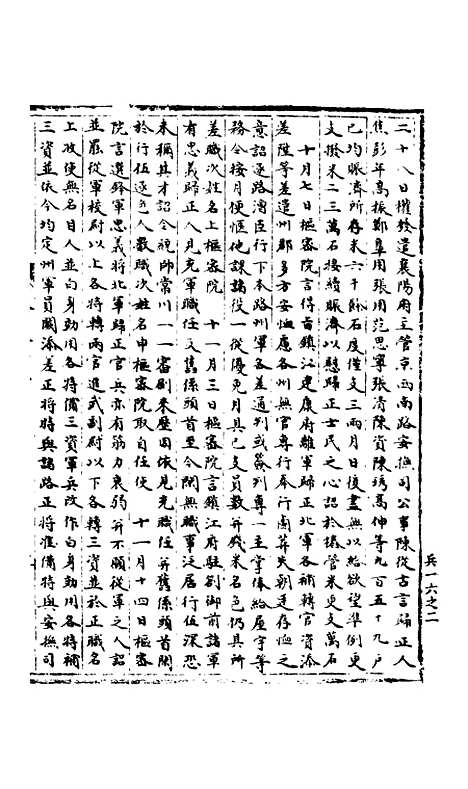 二十八日權發遣襄陽府主管京西南路安撫司公事陳從古言歸正人
焦彭年高振鄭阜用張用范思寧張清陳資陳琇高伸等九百五十九戶
已均賑濟所存米六千餘石度僅支三兩月後盡無以給欲望準例更
支撥米二三萬石接續賑濟以慰歸正士民之心詔於樁管米更支萬石
十月七日樞密院言得旨鎮江建康府離軍歸正北軍各補轉官資添
差陞等差遣州郡多方安恤應各州無官專行奉行鹵莽失朝廷存恤之
意詔逐路漕臣行下本路州軍各差通判或簽判專一主掌俸給屋宇等
務令按月便慪他課諸役一從優免月具已支員數并錢米名色仍具所
差職次姓名上樞密院 十一月三日樞密院言鎮江府駐劄御前諸軍
有忠義歸正人見充軍職任又舊係頭首至今閑無職事泛居行伍深恐
未稱其才詔令視師常川一一審劄來歷因依見充職任并舊係頭首閑
於行伍逐色人數職次姓名申樞密院取自任使 十一月十四日樞密
院言選鋒軍忠義將北軍歸正官兵亦有筋力衰弱并不願從軍之人詔
並罷從軍校尉以上各特轉兩官進武副尉以下各轉三資並於正職名
上收使無名目人並白身効用各特補三資軍兵改作白身効用各特補
三資並依今均定州軍員闕添差正將特與諸路正將准備特與安撫司
兵一六之二